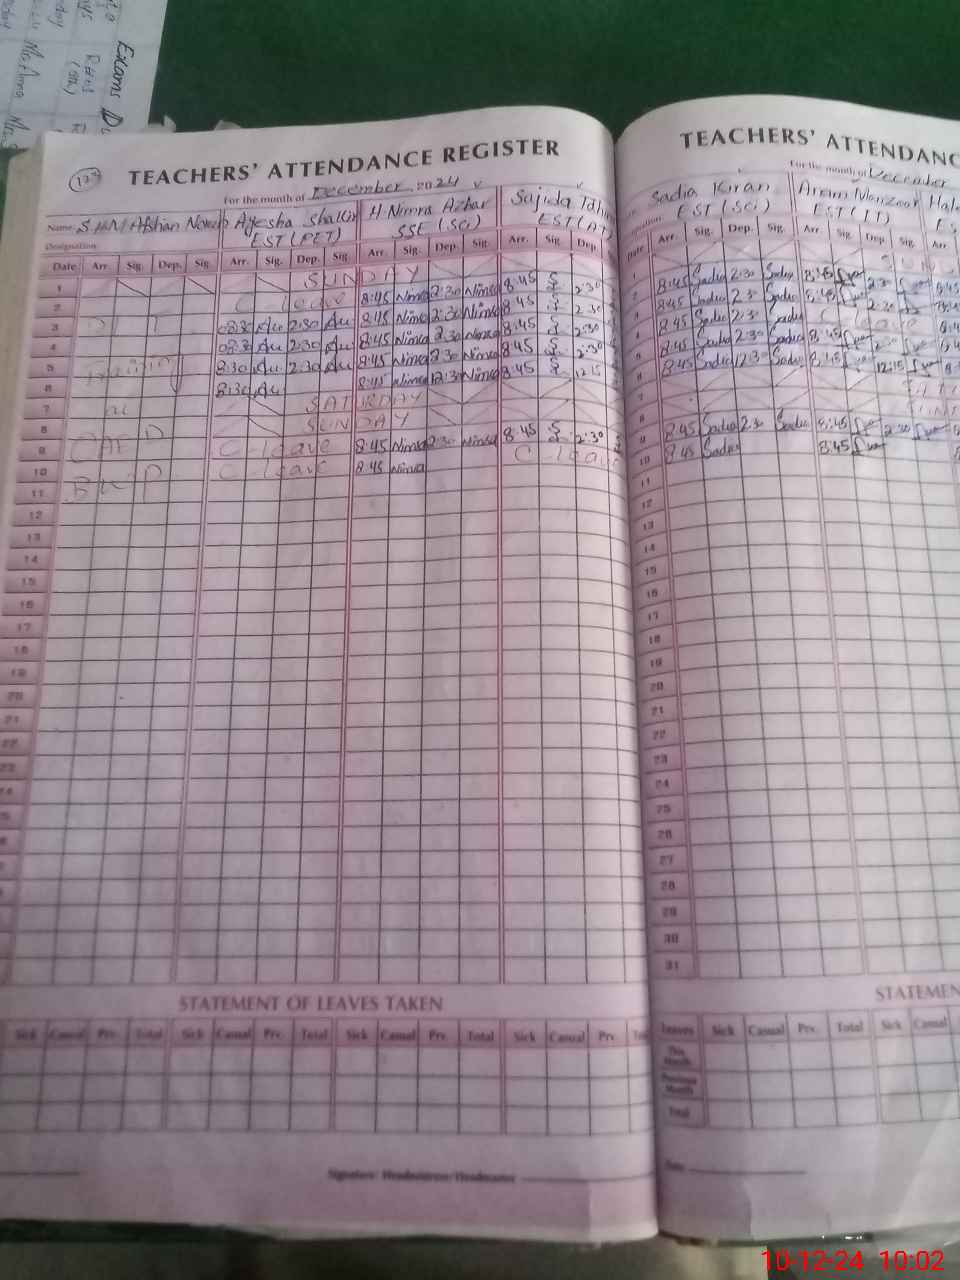 Exams
TEACHERS' ATTENDANCE REGISTER
For the month of December 2024
Name S.HM Afshan Ayesha Shakir H. Nimra Azhar Sajida
Designation EST (PET) SSE (Sci) EST (AT)
Date Arr. Sig. Dep. Sig. Arr. Sig. Dep. Sig. Arr. Sig. Dep. Sig. Arr. Sig. Dep.
1 SUNDAY
2 C leave 8:45 Nimra 2:30 Nimra 8:45 2:30
3 08:30 Au 2:30 Au 8:45 Nimra 2:30 Nimra 8:45 2:30
4 08:30 Au 2:30 Au 8:45 Nimra 2:30 Nimra 8:45 2:30
5 Training 8:30 Au 2:30 Au 8:45 Nimra 2:30 Nimra 8:45 2:30
6 8:30 Au 8:45 Nimra 12:30 Nimra 8:45 12:15
7 at SATURDAY
8 SUNDAY
9 C leave 8:45 Nimra 2:30 Nimra 8:45 2:30
10 C leave 8:45 Nimra C leave
11
12
13
14
15
16
17
18
19
20
21
22
23
STATEMENT OF LEAVES TAKEN
Sick Casual Prv. Total Sick Casual Prv. Total Sick Casual Prv. Total Sick Casual Prv.
Signature: Headmistress/Headmaster
TEACHERS' ATTENDANC
For the month of December
Sadia Kiran Anam Manzoor
EST (Sci) EST (IT)
Date Arr. Sig. Dep. Sig. Arr. Sig. Dep. Sig. Arr.
1
2 8:45 Sadia 2:30 Sadia 8:45 2:30
3 8:45 Sadia 2:30 Sadia 8:45 2:30
4 8:45 Sadia 2:30 Sadia C leave
5 8:45 Sadia 2:30 Sadia 8:45 2:30
6 8:45 Sadia 12:30 Sadia 8:45 12:15
7
8
9 8:45 Sadia 2:30 Sadia 8:45 2:30
10 8:45 Sadia 8:45
11
12
13
14
15
16
17
18
19
20
21
22
23
24
25
26
27
28
29
30
31
STATEMEN
Leaves Sick Casual Prv. Total Sick Casual
This Month
Previous Month
Total
Date
10-12-24 10:02